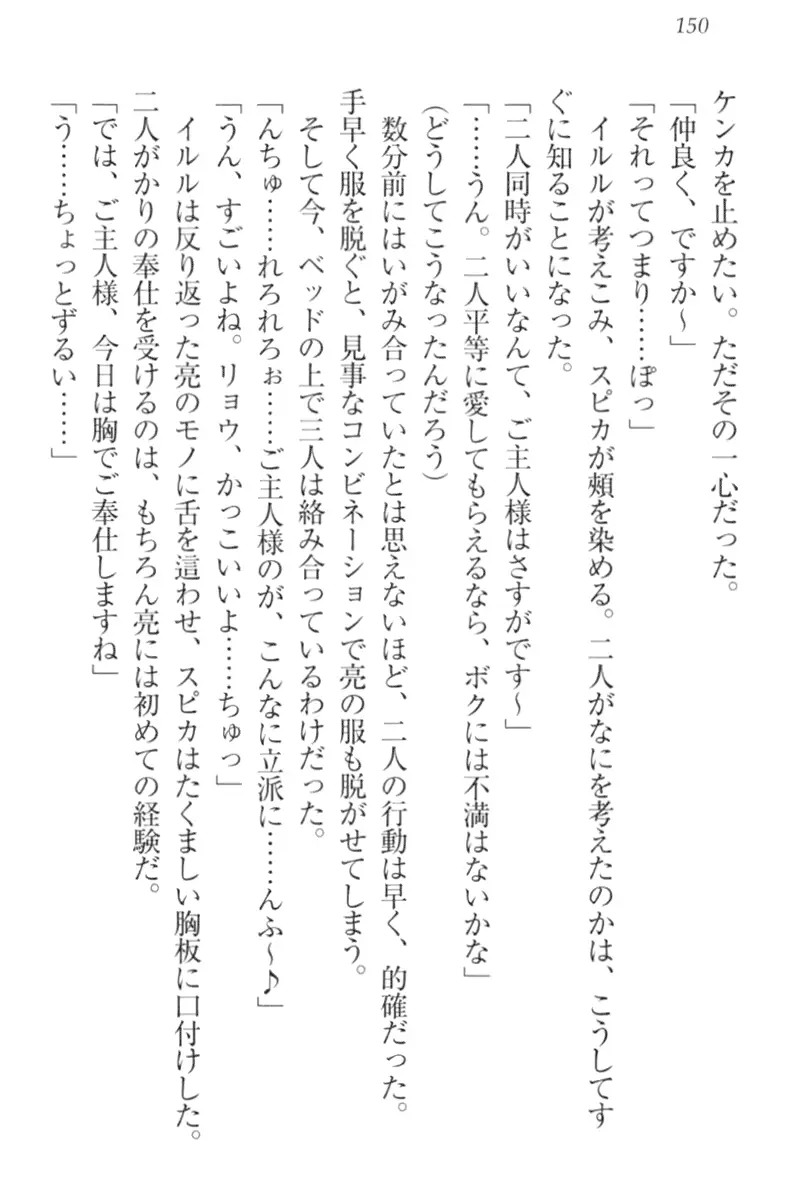 150
ケンカを止めたい。ただその一心だった。
「仲良く、ですか〜」
「それってつまり……ぽっ」
　イルルが考えこみ、スピカが頰を染める。二人がなにを考えたのかは、こうしてす
ぐに知ることになった。
「二人同時がいいなんて、ご主人様はさすがです〜」
「……うん。二人平等に愛してもらえるなら、ボクには不満はないかな」
（どうしてこうなったんだろう）
　数分前にはいがみ合っていたとは思えないほど、二人の行動は早く、的確だった。
手早く服を脱ぐと、見事なコンビネーションで亮の服も脱がせてしまう。
　そして今、ベッドの上で三人は絡み合っているわけだった。
「んちゅ……れろれろぉ……ご主人様のが、こんなに立派に……んふ〜♪」
「うん、すごいよね。リョウ、かっこいいよ……ちゅっ」
　イルルは反り返った亮のモノに舌を這わせ、スピカはたくましい胸板に口付けした。
二人がかりの奉仕を受けるのは、もちろん亮には初めての経験だ。
「では、ご主人様、今日は胸でご奉仕しますね」
「う……ちょっとずるい……」